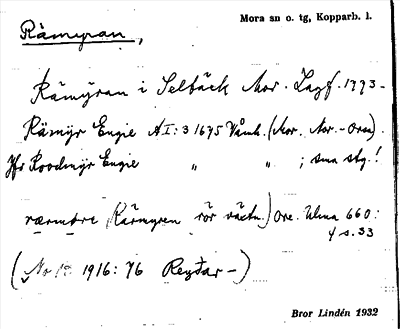 Mora sn o. tg, Kopparb. l.
Rämyran,
Rämyran i Selbäck Mor. Lagf. 1773-
Rämyr Engie A I: 3 1675 Våmh. (Mor. Nor.-Orsa).
Jfr Roodmyr Engie " " ; sma stg.!
rærmɑre (Rärmyren rör växtn.) Ore. Ulma 660:
4 s. 33
(No 1916: 76 Reyðar-)
Bror Lindén 1932